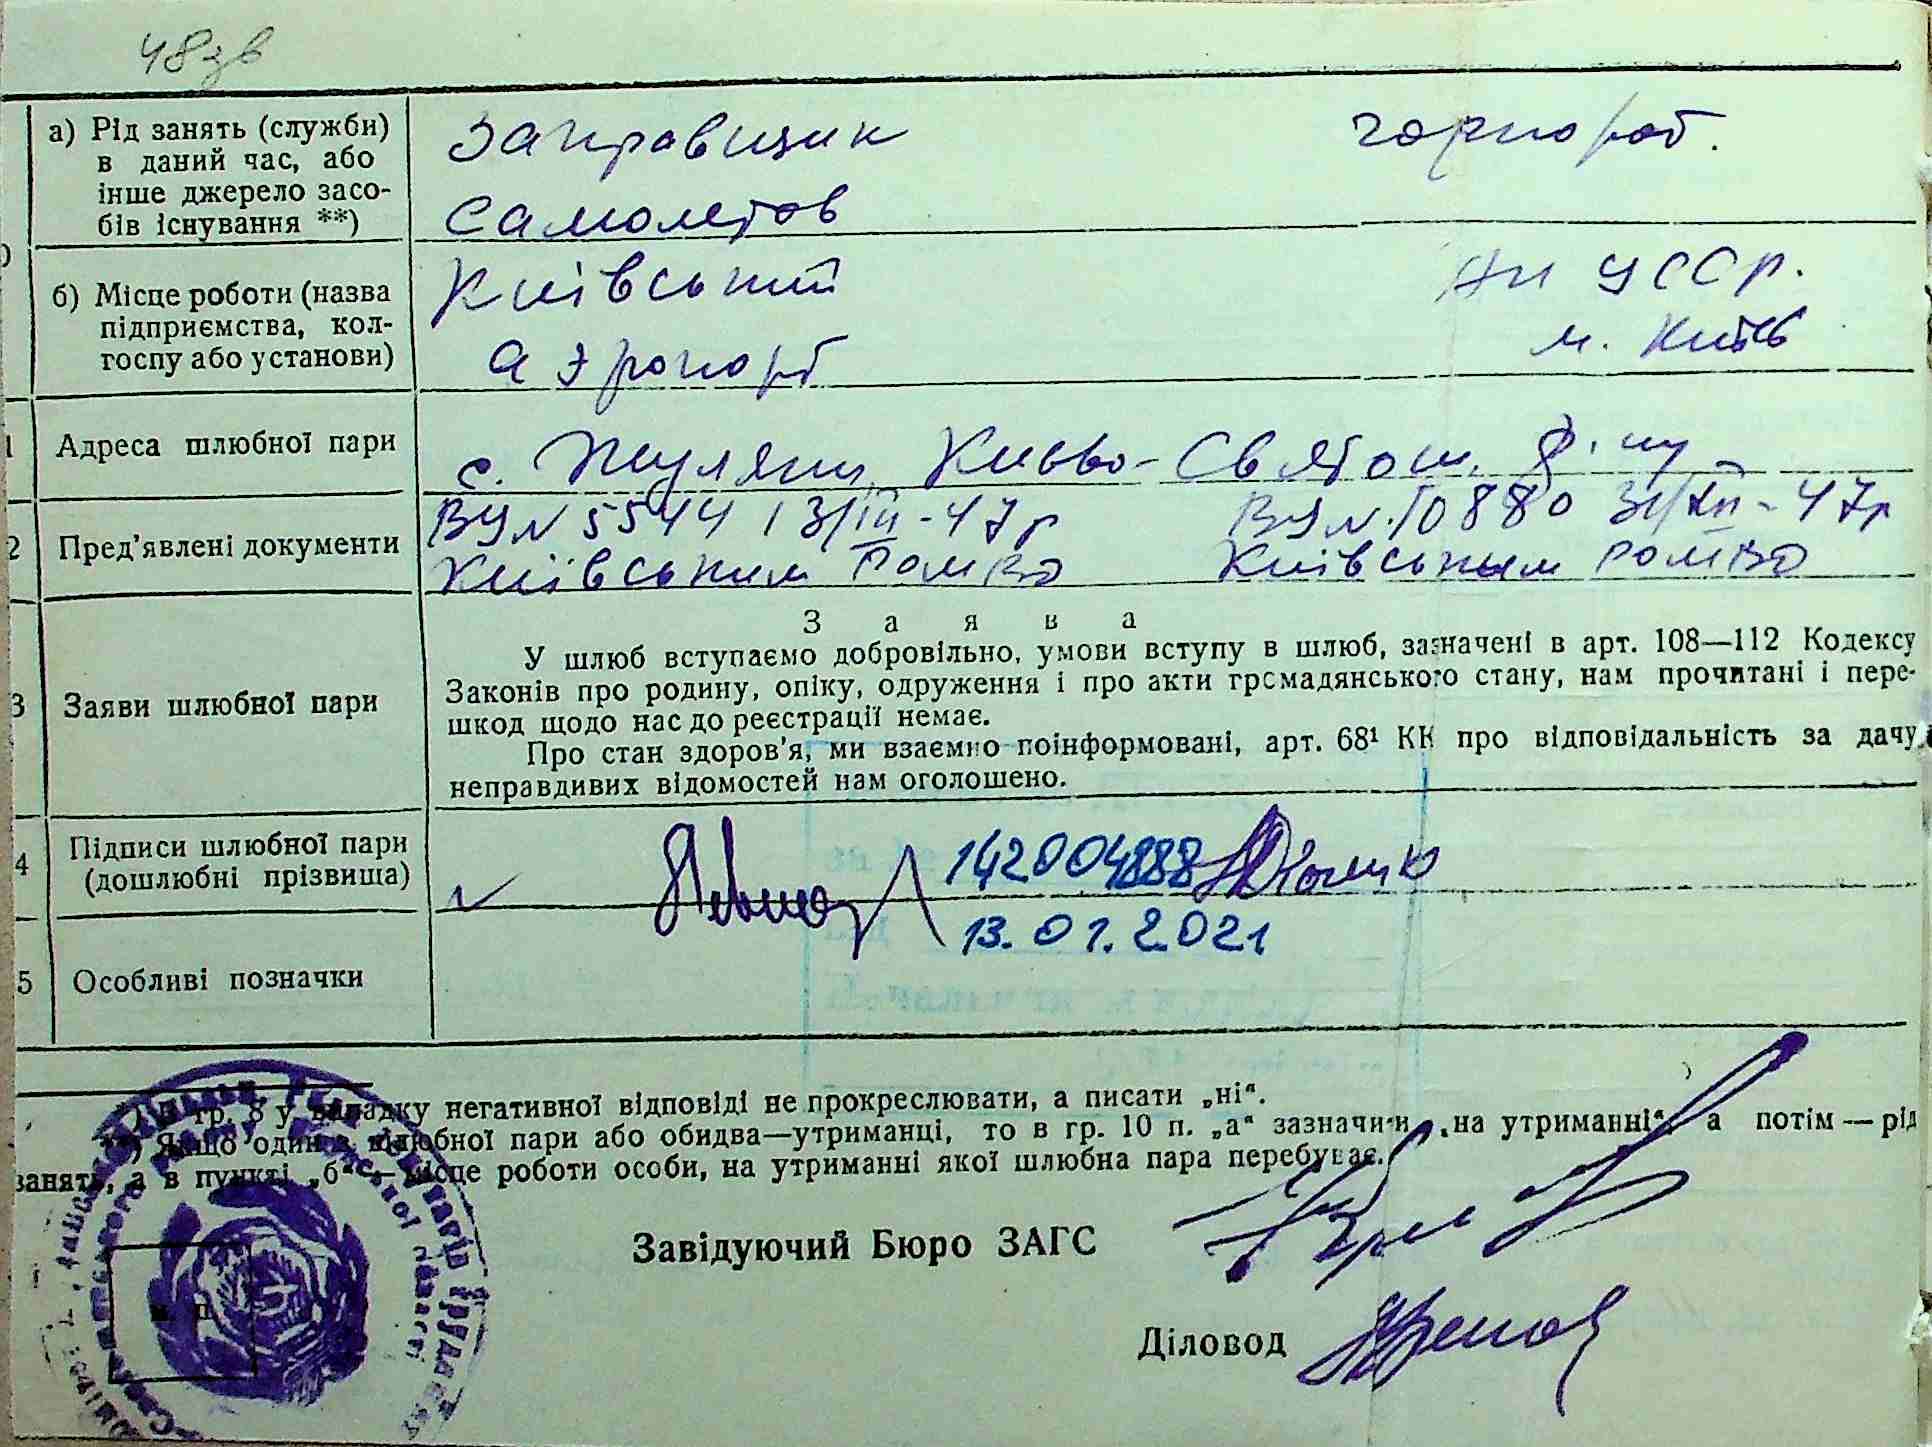 48зв
а) Рід занять (служби)
в даний час, або
інше джерело засо-
бів існування **)
Заправщик
самолетов
чорнороб.
б) Місце роботи (назва
підприємства, кол-
госпу або установи)
Київський
аэропорт
АН УССР.
м. Київ
1 Адреса шлюбної пари
с. Жуляни, Києво-Святош. р-ну
2 Пред’явлені документи
ВУ N 5544 13/III-47р
Київським
ВУ N. 10880 31/XII-47р
Київським
3 Заяви шлюбної пари
Заява
У шлюб вступаємо добровільно, умови вступу в шлюб, зазначені в арт. 108—112 Кодексу
Законів про родину, опіку, одруження і про акти громадянського стану, нам прочитані і пере-
шкод щодо нас до реєстрації немає.
Про стан здоров’я, ми взаємно поінформовані, арт. 68¹ КК про відповідальність за дачу
неправдивих відомостей нам оголошено.
4 Підписи шлюбної пари
(дошлюбні прізвища)
142004888
13.01.2021
5 Особливі позначки
*) В гр. 8 у випадку негативної відповіді не прокреслювати, а писати „ні“.
**) Якщо один з шлюбної пари або обидва—утриманці, то в гр. 10 п. „а“ зазначити „на утриманні“, а потім — рід
занять, а в пункті „б“ — місце роботи особи, на утриманні якої шлюбна пара перебуває.
Завідуючий Бюро ЗАГС
Діловод
м. п.